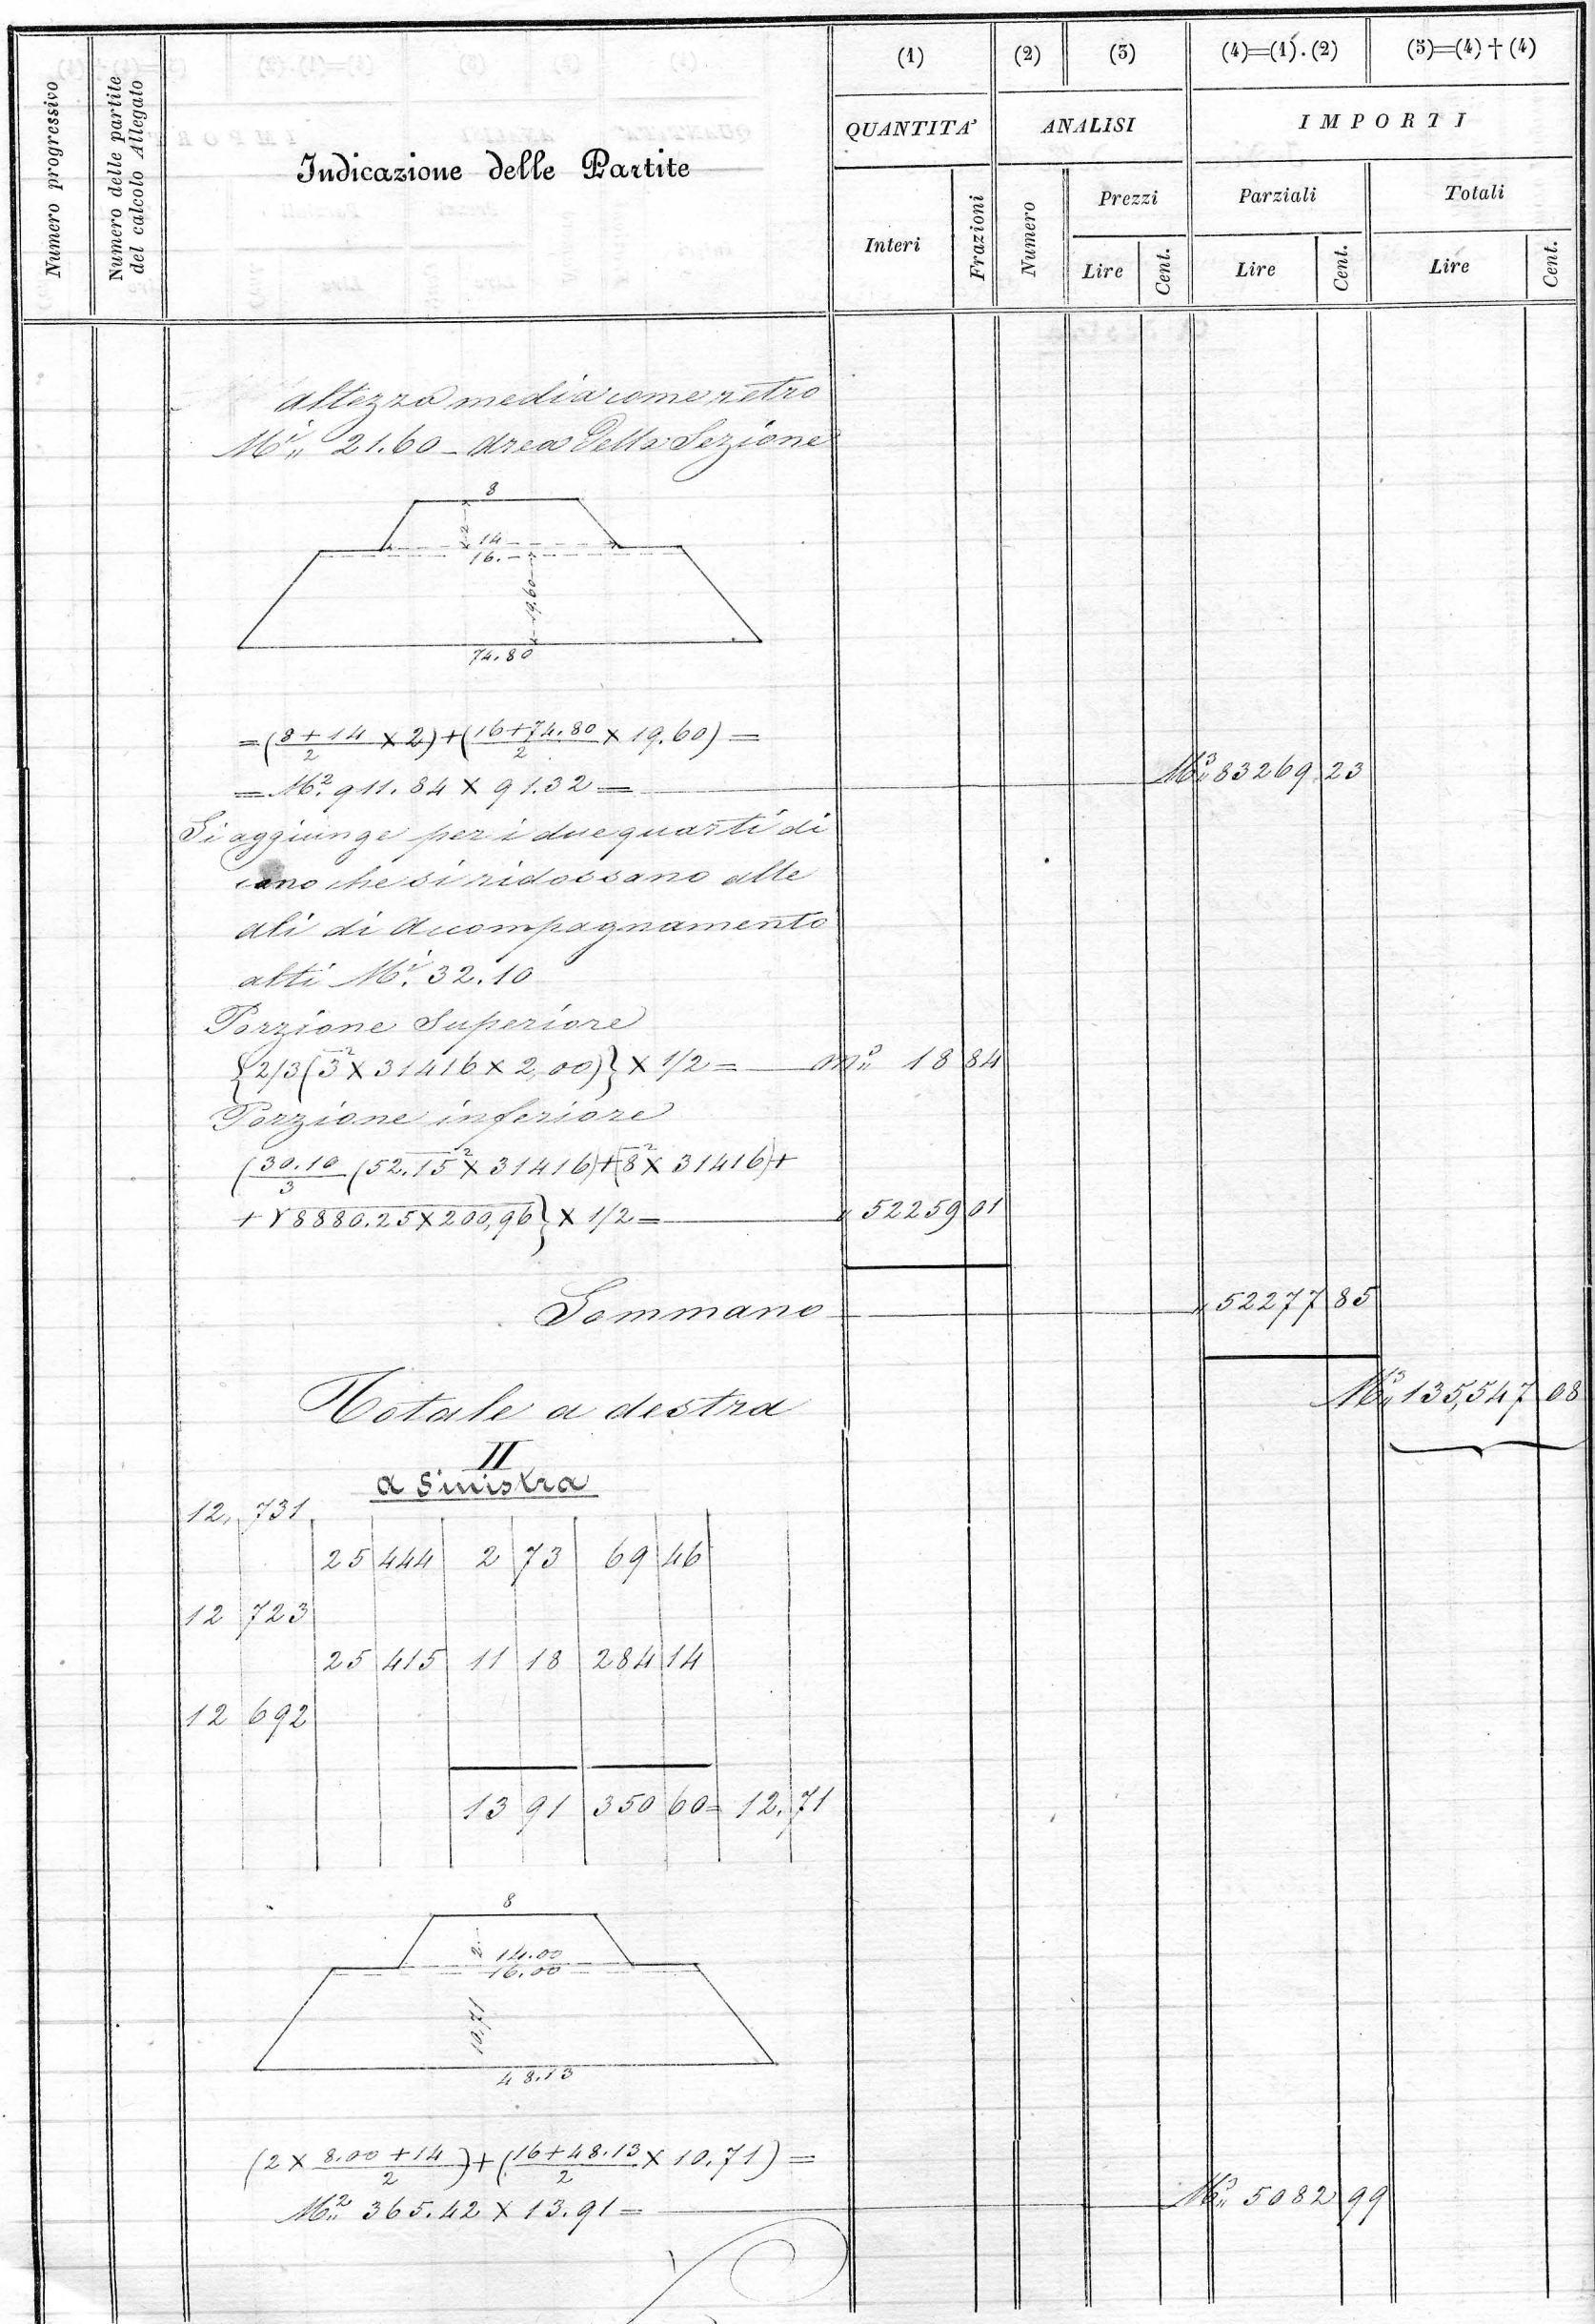 (1) (2) (3) (4)=(1).(2) (5)=(4)†(4)
Numero progressivo
Numero delle partite del calcolo Allegato
Indicazione delle Partite
QUANTITA' ANALISI IMPORTI
Interi Frazioni Numero Prezzi Parziali Totali
Lire Cent. Lire Cent. Lire Cent.
altezza media come retro
Mⁱ„ 21.60 – Area della Sezione
8
2
14
16.
19.60
74.80
=(8+14/2 × 2)+(16+74.80/2 × 19.60)=
= M². 911.84 × 91.32 = M³„ 83269 23
Si aggiunge per i due quarti di
cono che si ridossano alle
ali di Accompagnamento
alti Mⁱ. 32.10
Porzione Superiore
{2/3(3² × 31416 × 2,00)} × 1/2 = m³„ 18 84
Porzione inferiore
(30.10/3 (52.15² × 31416)+(8² × 31416)+
+√8880.25×200,96} × 1/2 = „ 52259 01
Sommano „ 52277 85
Totale a destra M³„ 135,547 08
II
a Sinistra
12, 731
25 444 2 73 69 46
12 723
25 415 11 18 284 14
12 692
13 91 350 60 = 12.71
8
2
14.00
16.00
10,71
48.13
(2 × 8.00+14/2)+(16+48.13/2 × 10.71)=
M²„ 365.42 × 13.91 = M³„ 5082 99